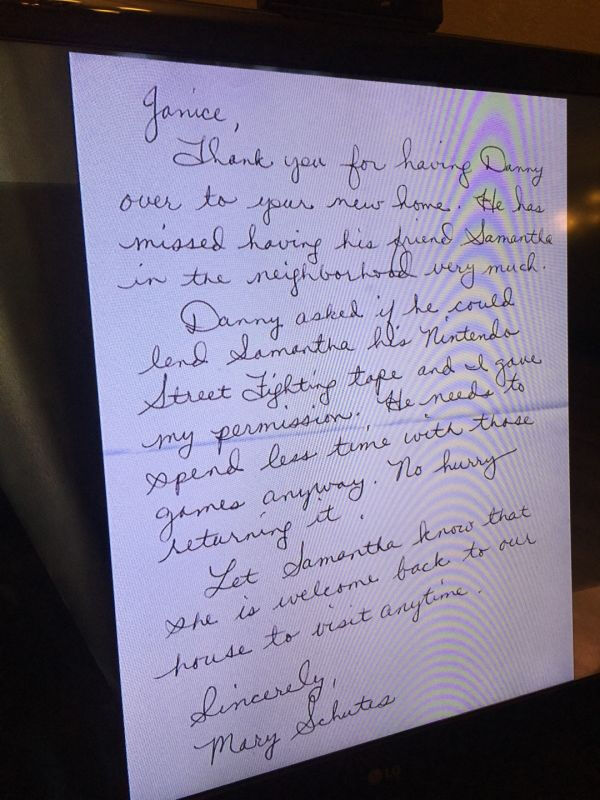 Janice,
Thank you for having Danny
over to your new home. He has
missed having his friend Samantha
in the neighborhood very much.
Danny asked if he could
lend Samantha his Nintendo
Street Fighting tape and I gave
my permission. He needs to
spend less time with those
games anyway. No hurry
returning it.
Let Samantha know that
she is welcome back to our
house to visit anytime.
Sincerely,
Mary Schutes
LG